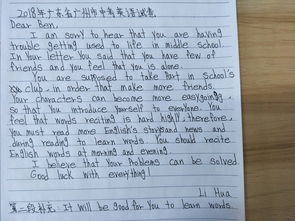 2018年广东省广州市中考英语试卷
Dear Ben,
I am sorry to hear that you are having
trouble getting used to life in middle school.
In your letter you said that you have few of
friends and you feel that you is alone.
You are supposed to take part in School's
club, in order that make more friends.
Your characters can become more easygoing,
so that you introduce yourself to everyone. You
feel that words reciting is hard highly, therefore,
you must read more English's storys and news and
during reading to learn words. You should recite
English words at morning and evening.
I believe that Your Problems can be solved.
Good luck with everything!
Li Hua
第二段补充: It will be good for You to learn words.